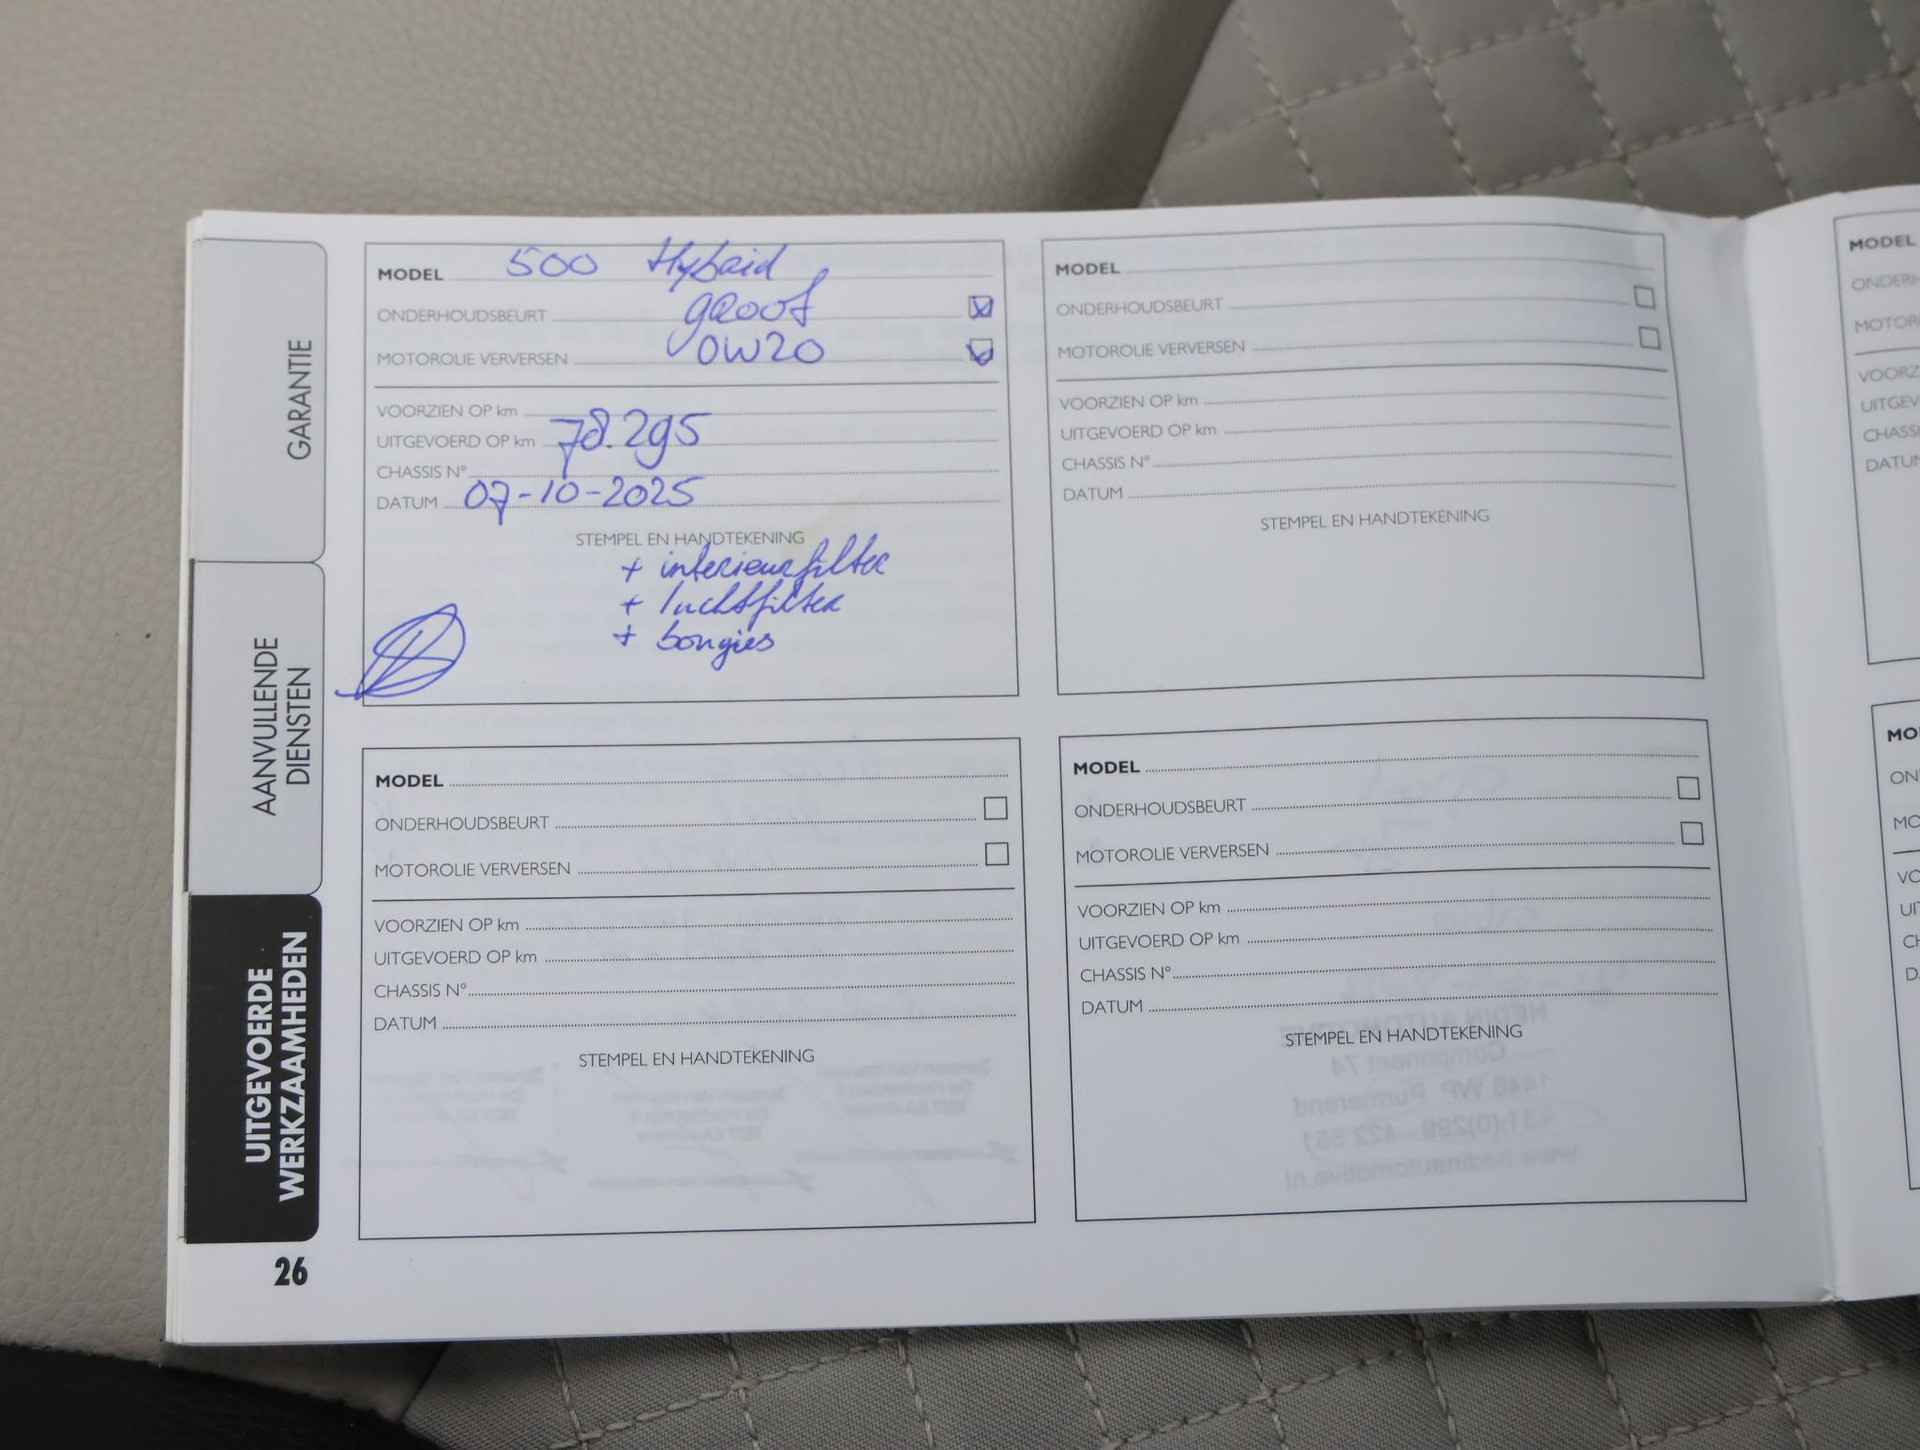 GARANTIE
AANVULLENDE
DIENSTEN
UITGEVOERDE
WERKZAAMHEDEN
26
MODEL 500 Hybrid
ONDERHOUDSBEURT groot
MOTOROLIE VERVERSEN 0W20
VOORZIEN OP km
UITGEVOERD OP km 78.295
CHASSIS N°
DATUM 07-10-2025
STEMPEL EN HANDTEKENING
+ interieurfilter
+ luchtfilter
+ bougies
MODEL
ONDERHOUDSBEURT
MOTOROLIE VERVERSEN
VOORZIEN OP km
UITGEVOERD OP km
CHASSIS N°
DATUM
STEMPEL EN HANDTEKENING
MODEL
ONDERHOUDSBEURT
MOTOROLIE VERVERSEN
VOORZIEN OP km
UITGEVOERD OP km
CHASSIS N°
DATUM
STEMPEL EN HANDTEKENING
MODEL
ONDERHOUDSBEURT
MOTOROLIE VERVERSEN
VOORZIEN OP km
UITGEVOERD OP km
CHASSIS N°
DATUM
STEMPEL EN HANDTEKENING
MODEL